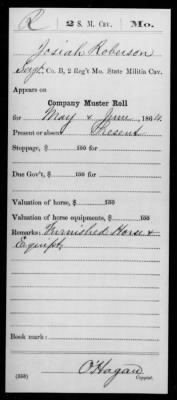 R 2 S. M. Cav. Mo.
Josiah Roberson
Sergt., Co. B, 2 Reg't Mo. State Militia Cav.
Appears on
Company Muster Roll
for May & June, 1864.
Present or absent Present
Stoppage, $ 100 for
Due Gov't, $ 100 for
Valuation of horse, $ 100
Valuation of horse equipments, $ 100
Remarks: Furnished Horse &
Equipts
Book mark:
(358) O'Hagan
Copyist.